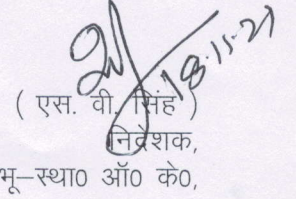 18.11.21
( एस. वी. सिंह )
निदेशक,
भू–स्था0 ऑ0 के0,